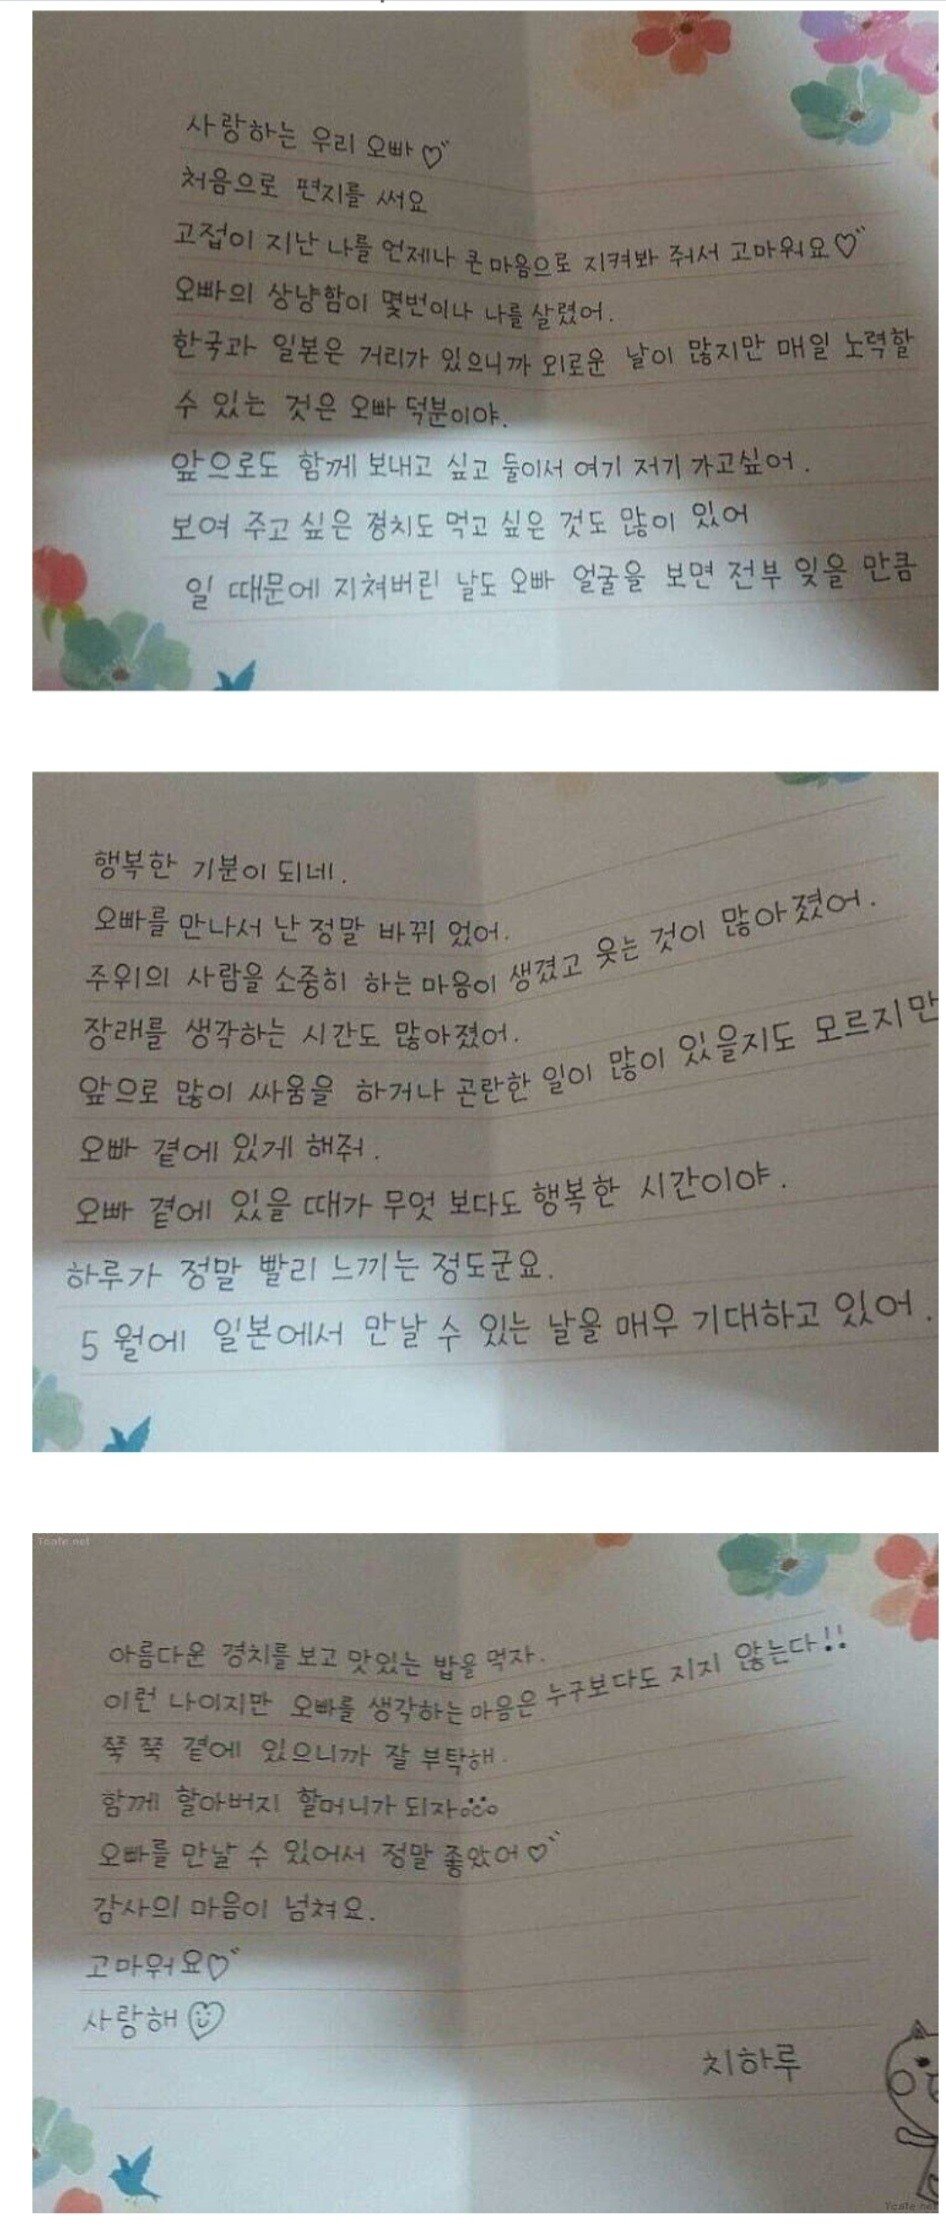 사랑하는 우리 오빠♡
처음으로 편지를 써요
고접이 지난 나를 언제나 큰마음으로 지켜봐 주셔서 고마워요♡
오빠의 상냥함이 몇번이나 나를 살렸어.
한국과 일본은 거리가 있으니까 외로운 날이 많지만 매일 노력할
수 있는 것은 오빠 덕분이야.
앞으로도 함께 보내고 싶고 둘이서 여기 저기 가고싶어.
보여 주고 싶은 경치도 먹고 싶은 것도 많이 있어
일 때문에 지쳐버린 날도 오빠 얼굴을 보면 전부 잊을 만큼
행복한 기분이 되네.
오빠를 만나서 난 정말 바뀌 었어.
주위의 사람을 소중히 하는 마음이 생겼고 웃는 것이 많아졌어.
장래를 생각하는 시간도 많아졌어.
앞으로 많이 싸움을 하거나 곤란한 일이 많이 있을지도 모르지만
오빠 곁에 있게 해줘.
오빠 곁에 있을 때가 무엇 보다도 행복한 시간이야.
하루가 정말 빨리 느끼는 정도군요.
5월에 일본에서 만날 수 있는 날을 매우 기대하고 있어.
Tcafe.net
아름다운 경치를 보고 맛있는 밥을 먹자.
이런 나이지만 오빠를 생각하는 마음은 누구보다도 지지 않는다!!
쭉 쭉 곁에 있으니까 잘 부탁해.
함께 할아버지 할머니가 되자
오빠를 만날 수 있어서 정말 좋았어♡
감사의 마음이 넘쳐요.
고마워요♡
사랑해
치하루
Tcafe.net